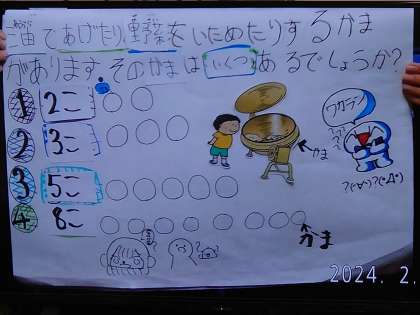 油であげたり、野菜をいためたりするかま
があります。そのかまはいくつあるでしょうか?
1 2こ
2 3こ
3 5こ
4 8こ
かま
ワカラン
かま
2024. 2.